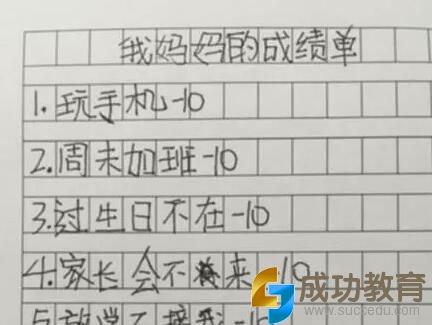 我妈妈的成绩单
1.玩手机-10
2.周未加班-10
3.过生日不在-10
4.家长会不来-10
5.放学不接我-10
成功教育
www.succedu.com